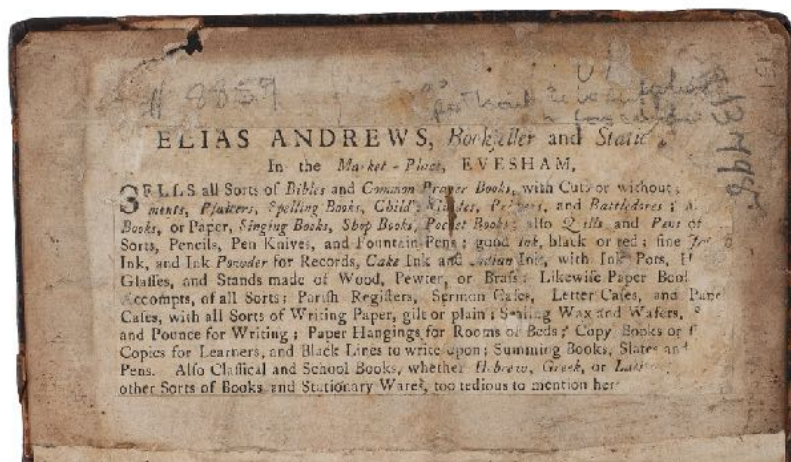 # 8859
13798
ELIAS ANDREWS, Bookſeller and
In the Market-Place, EVESHAM,
SELLS all Sorts of Bibles and Common Prayer Books, with Cuts or without;
Pſalters, Spelling Books, Child's Guides, Primers, and Battledores;
Books, or Paper, Singing Books, Shop Books, Pocket Books; alſo Quills and Pens of
Sorts, Pencils, Pen Knives, and Fountain-Pens; good Ink, black or red; fine
Ink, and Ink Powder for Records, Cake Ink and Indian Ink, with Ink Pots,
Glaſſes, and Stands made of Wood, Pewter, or Braſs: Likewiſe Paper
Accompts, of all Sorts; Pariſh Regiſters, Sermon Caſes, Letter Caſes, and
Caſes, with all Sorts of Writing Paper, gilt or plain; Sealing Wax and Wafers,
and Pounce for Writing; Paper Hangings for Rooms or Beds; Copy Books or
Copies for Learners, and Black Lines to write upon; Summing Books, Slates and
Pens. Alſo Claſſical and School Books, whether Hebrew, Greek, or
other Sorts of Books and Stationary Wares, too tedious to mention